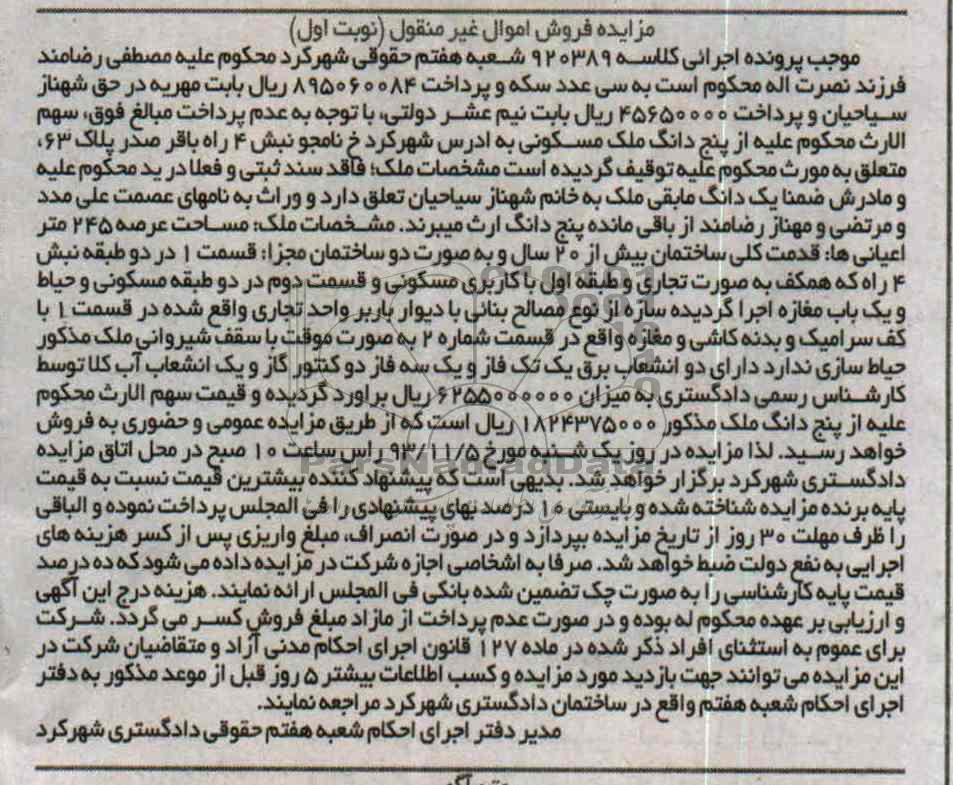 مزایده فروش اموال غیر منقول (نوبت اول)
موجب پرونده اجرائی کلاسه ۹۲۰۳۸۹ شعبه هفتم حقوقی شهرکرد محکوم علیه مصطفی رضامند
فرزند نصرت اله محکوم است به سی عدد سکه و پرداخت ۸۹۵۰۶۰۰۸۴ ریال بابت مهریه در حق شهناز
سیاحیان و پرداخت ۴۵۶۵۰۰۰۰ ریال بابت نیم عشر دولتی، با توجه به عدم پرداخت مبالغ فوق، سهم
الارث محکوم علیه از پنج دانگ ملک مسکونی به ادرس شهرکرد خ نامجو نبش ۴ راه باقر صدر پلاک ۶۳،
متعلق به مورث محکوم علیه توقیف گردیده است مشخصات ملک؛ فاقد سند ثبتی و فعلا در ید محکوم علیه
و مادرش ضمنا یک دانگ مابقی ملک به خانم شهناز سیاحیان تعلق دارد و وراث به نامهای عصمت علی مدد
و مرتضی و مهناز رضامند از باقی مانده پنج دانگ ارث میبرند. مشخصات ملک؛ مساحت عرصه ۲۴۵ متر
اعیانی ها: قدمت کلی ساختمان بیش از ۲۰ سال و به صورت دو ساختمان مجزا: قسمت ۱ در دو طبقه نبش
۴ راه که همکف به صورت تجاری و طبقه اول با کاربری مسکونی و قسمت دوم در دو طبقه مسکونی و حیاط
و یک باب مغازه اجرا گردیده سازه از نوع مصالح بنائی با دیوار باربر واحد تجاری واقع شده در قسمت ۱ با
کف سرامیک و بدنه کاشی و مغازه واقع در قسمت شماره ۲ به صورت موقت با سقف شیروانی ملک مذکور
حیاط سازی ندارد دارای دو انشعاب برق یک تک فاز و یک سه فاز دو کنتور گاز و یک انشعاب آب کلا توسط
کارشناس رسمی دادگستری به میزان ۶۲۵۵۰۰۰۰۰۰ ریال براورد گردیده و قیمت سهم الارث محکوم
علیه از پنج دانگ ملک مذکور ۱۸۲۴۳۷۵۰۰۰ ریال است که از طریق مزایده عمومی و حضوری به فروش
خواهد رسید. لذا مزایده در روز یک شنبه مورخ ۹۳/۱۱/۵ راس ساعت ۱۰ صبح در محل اتاق مزایده
دادگستری شهرکرد برگزار خواهد شد. بدیهی است که پیشنهاد کننده بیشترین قیمت نسبت به قیمت
پایه برنده مزایده شناخته شده و بایستی ۱۰ درصد بهای پیشنهادی را فی المجلس پرداخت نموده و الباقی
را ظرف مهلت ۳۰ روز از تاریخ مزایده بپردازد و در صورت انصراف، مبلغ واریزی پس از کسر هزینه های
اجرایی به نفع دولت ضبط خواهد شد. صرفا به اشخاصی اجازه شرکت در مزایده داده می شود که ده درصد
قیمت پایه کارشناسی را به صورت چک تضمین شده بانکی فی المجلس ارائه نمایند. هزینه درج این آگهی
و ارزیابی بر عهده محکوم له بوده و در صورت عدم پرداخت از مازاد مبلغ فروش کسر می گردد. شرکت
برای عموم به استثنای افراد ذکر شده در ماده ۱۲۷ قانون اجرای احکام مدنی آزاد و متقاضیان شرکت در
این مزایده می توانند جهت بازدید مورد مزایده و کسب اطلاعات بیشتر ۵ روز قبل از موعد مذکور به دفتر
اجرای احکام شعبه هفتم واقع در ساختمان دادگستری شهرکرد مراجعه نمایند.
مدیر دفتر اجرای احکام شعبه هفتم حقوقی دادگستری شهرکرد
ParsNamadData